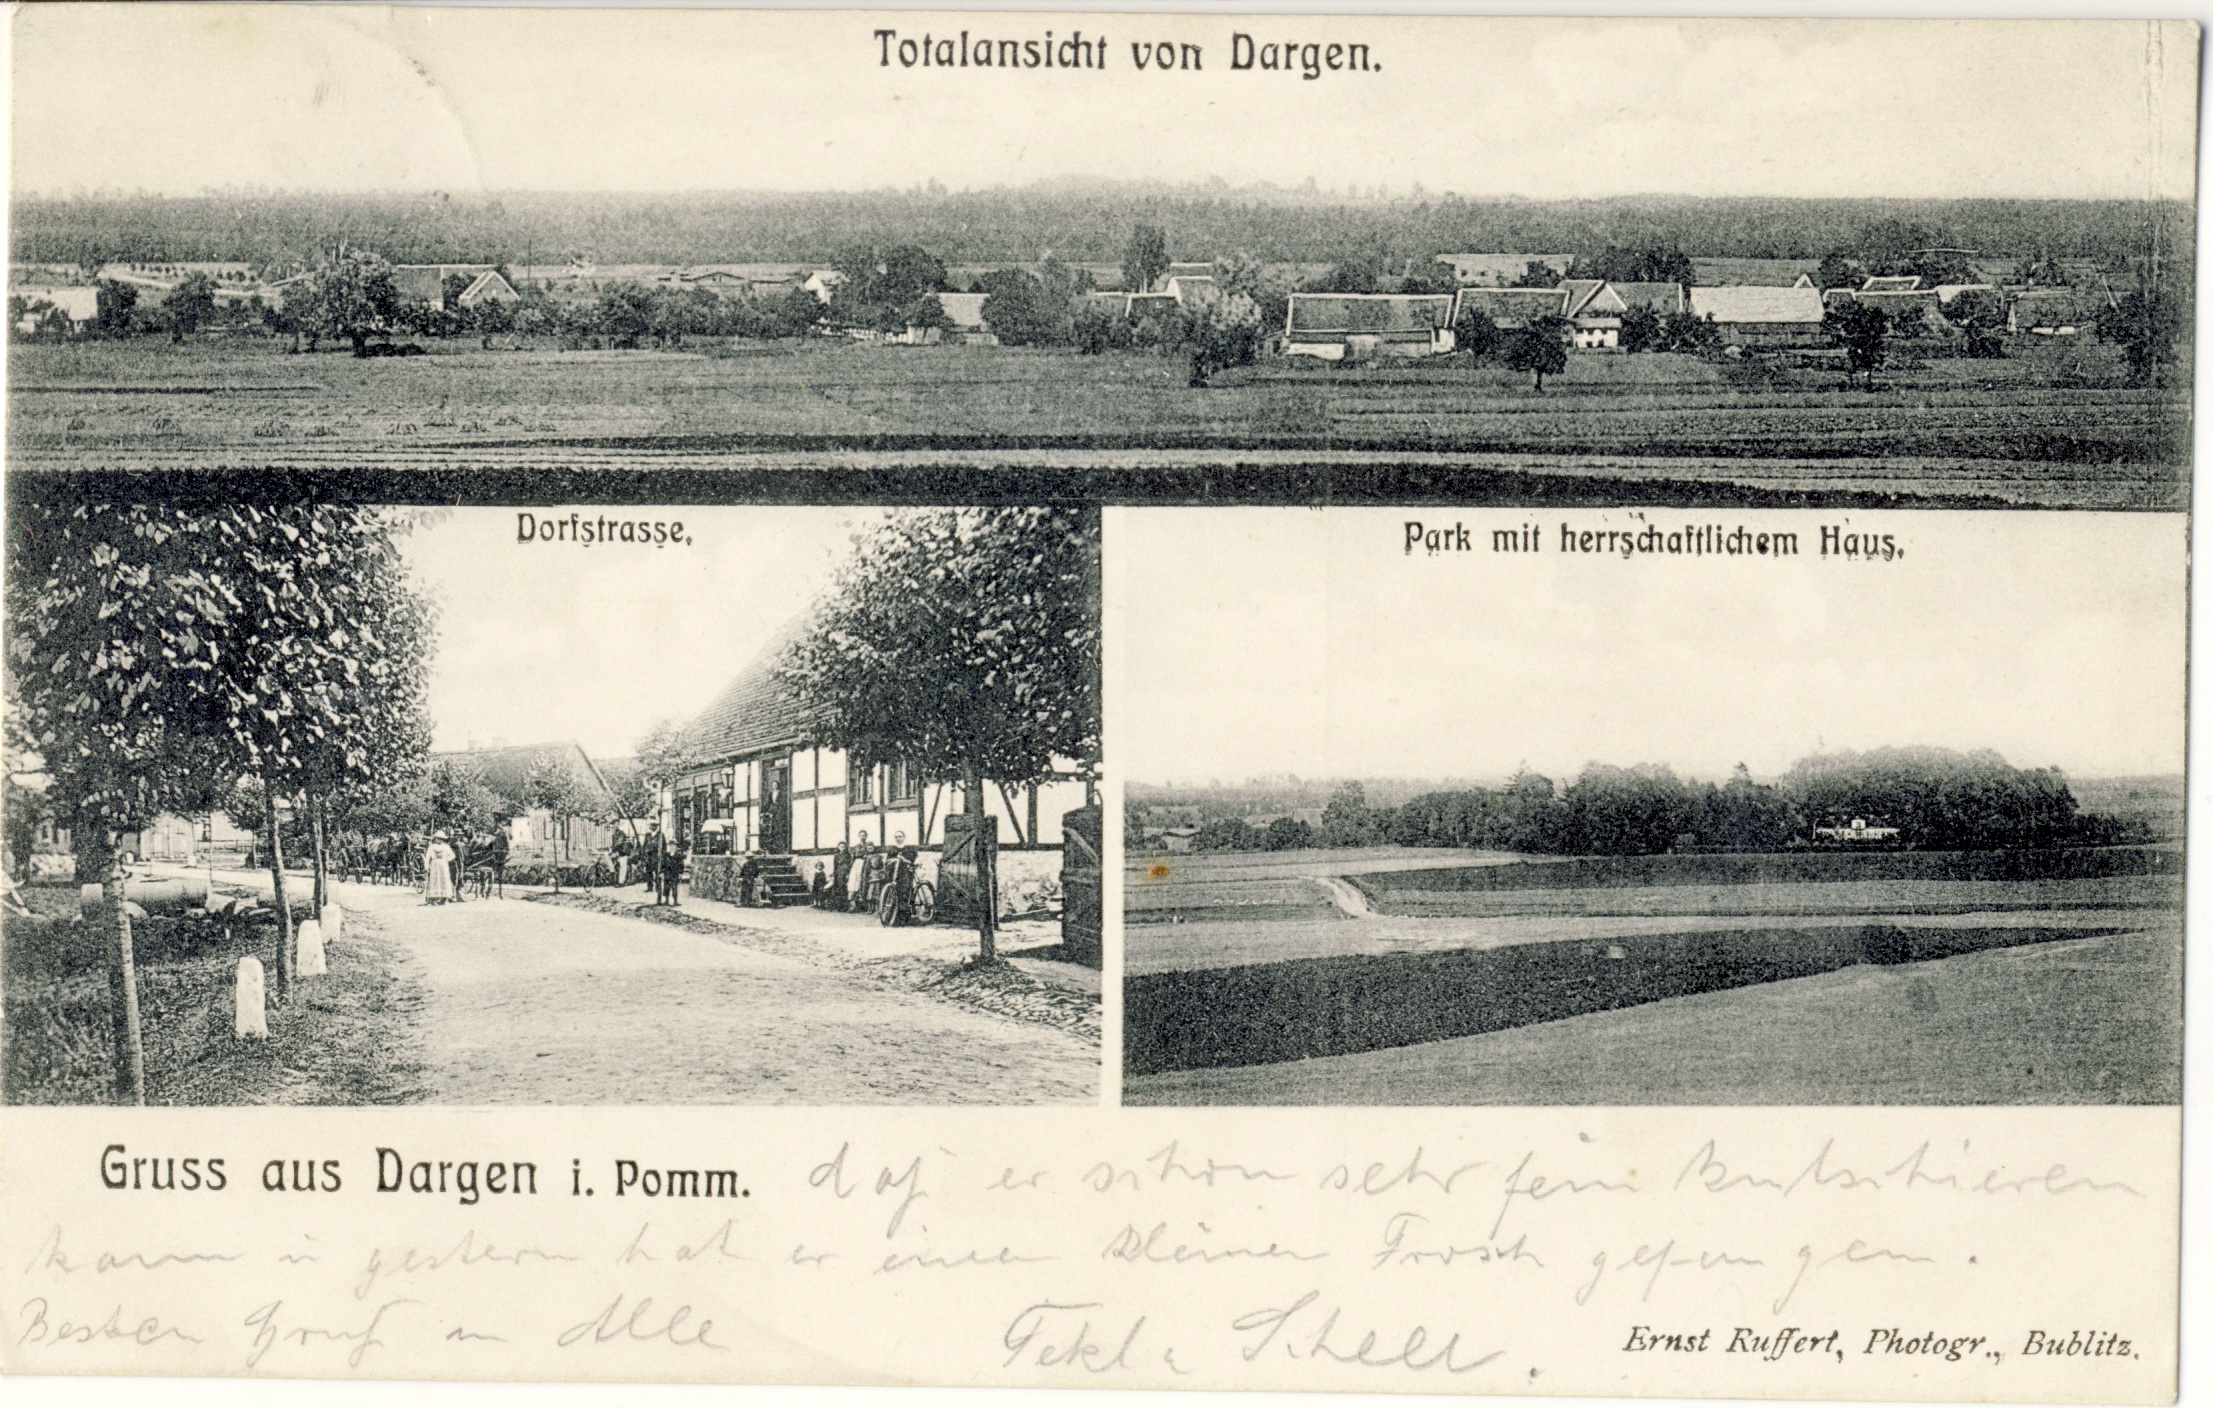 Totalansicht von Dargen.
Dorfstrasse.
Park mit herrschaftlichem Haus.
Gruss aus Dargen i. Pomm.
daß er schon sehr fein kutschieren
kann u gestern hat er einen kleinen Frosch gefangen.
Besten Gruß an Alle
Schell.
Ernst Ruffert, Photogr., Bublitz.